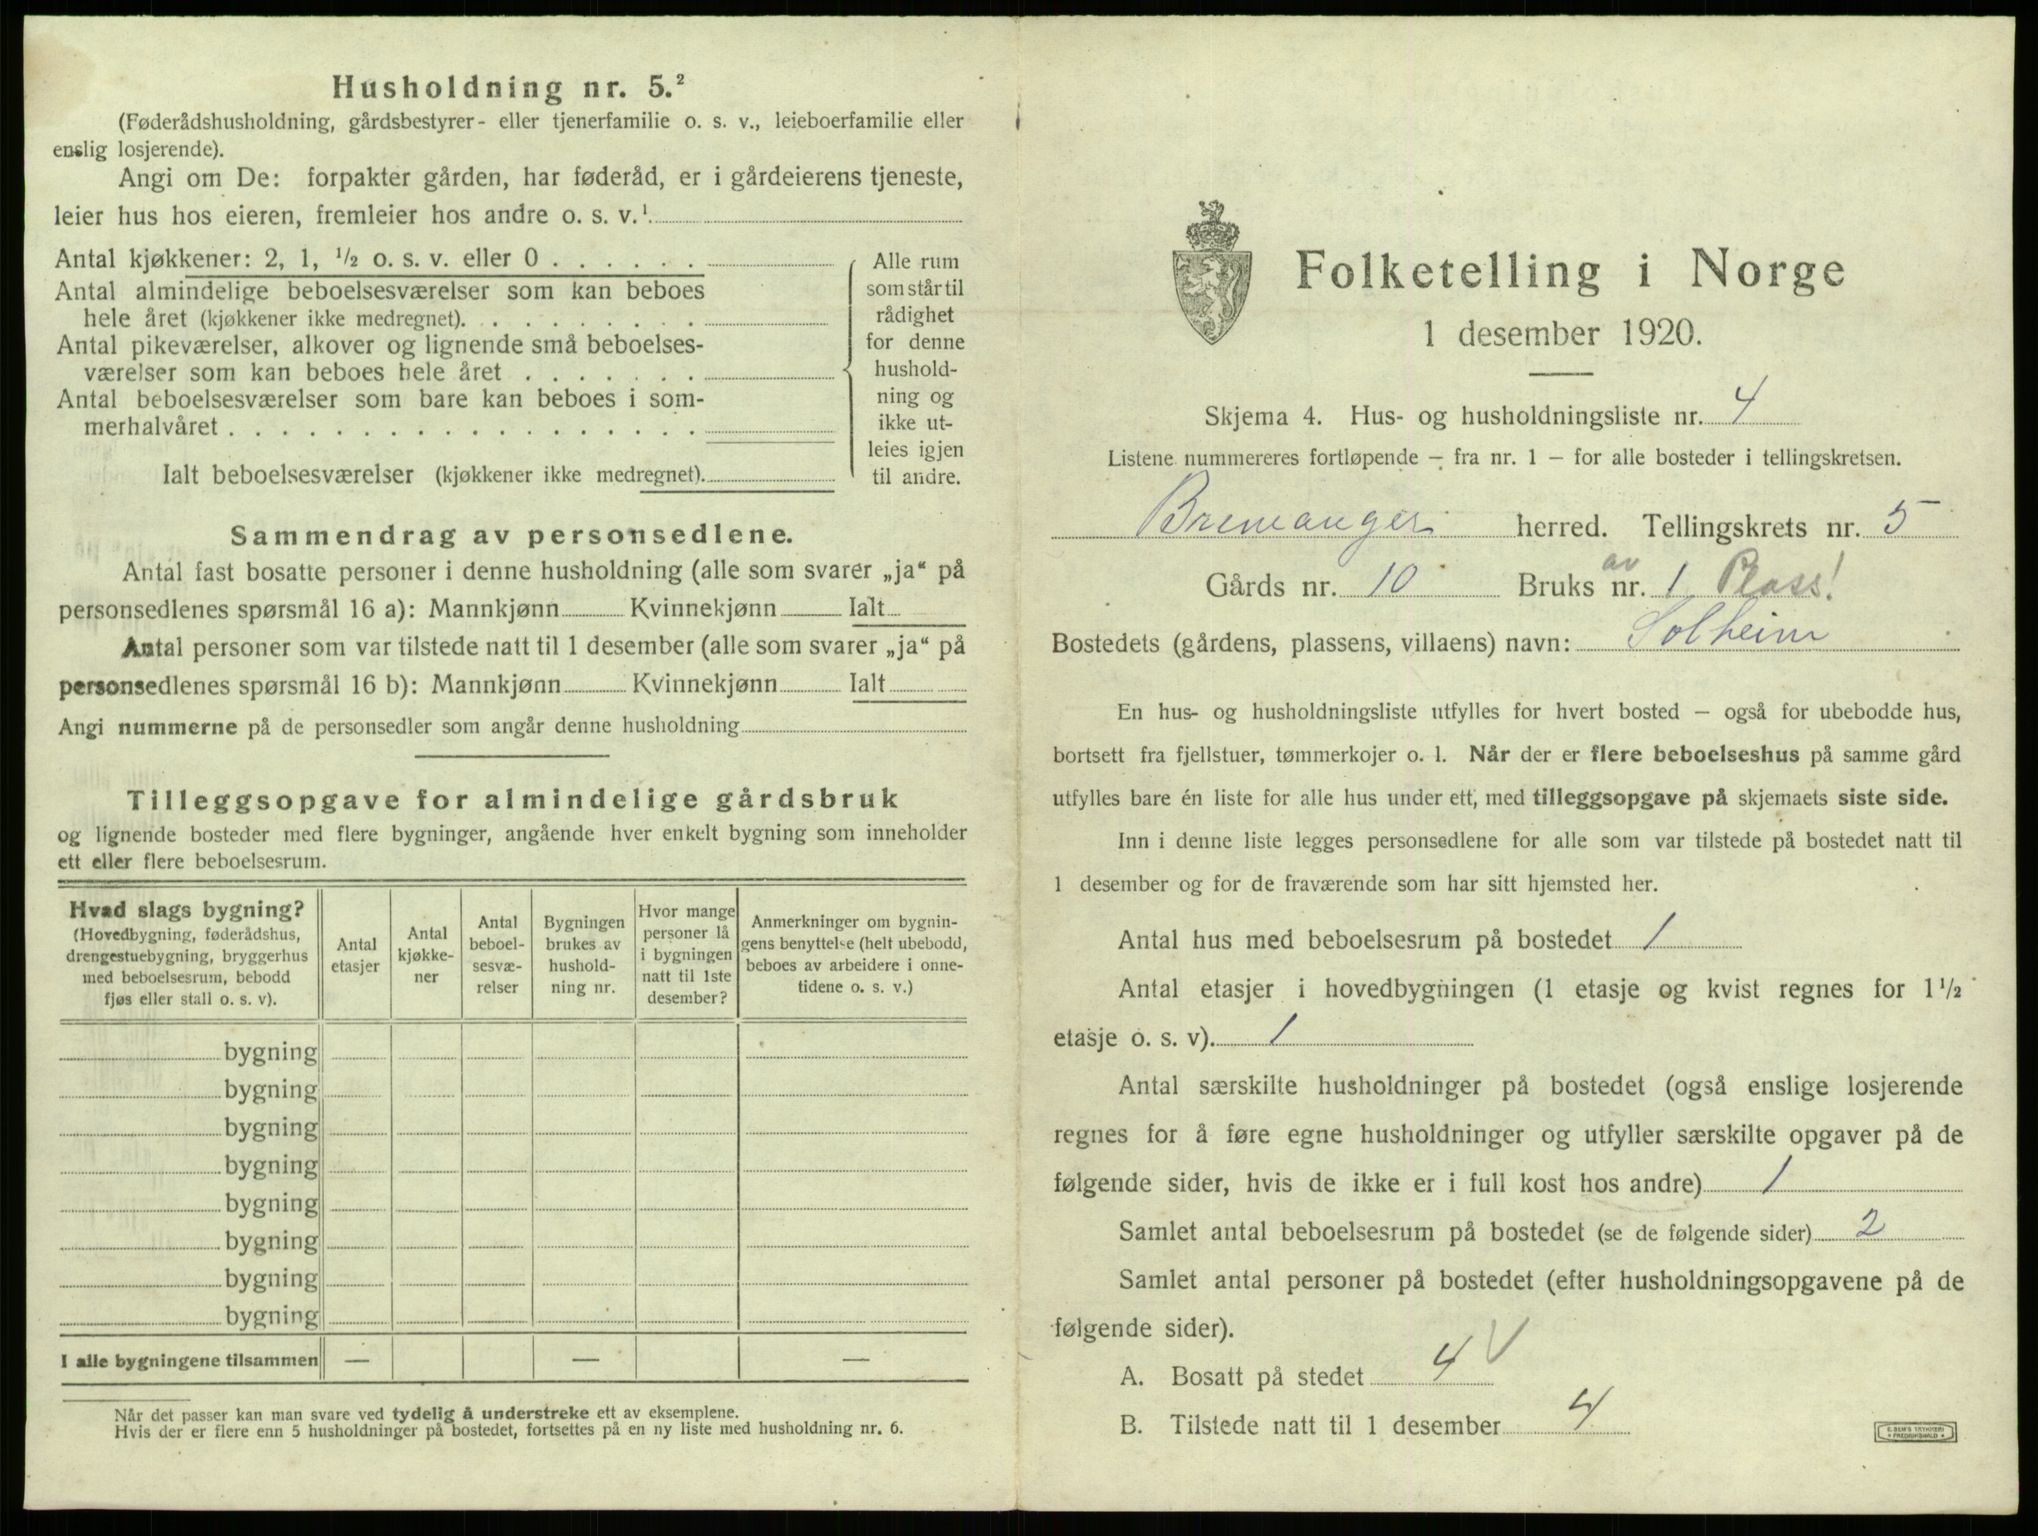 Husholdning nr. 5.²
(Føderådshusholdning, gårdsbestyrer- eller tjenerfamilie o. s. v., leieboerfamilie eller
enslig losjerende).
Angi om De: forpakter gården, har føderåd, er i gårdeierens tjeneste,
leier hus hos eieren, fremleier hos andre o. s. v.¹
Antal kjøkkener: 2, 1, ½ o. s. v. eller 0 . . . . . .
Antal almindelige beboelsesværelser som kan beboes
hele året (kjøkkener ikke medregnet). . . . . . . . .
Antal pikeværelser, alkover og lignende små beboelses-
værelser som kan beboes hele året . . . . . . .
Antal beboelsesværelser som bare kan beboes i som-
merhalvåret . . . . . . . . . . . . . . . . . .
Ialt beboelsesværelser (kjøkkener ikke medregnet).
Alle rum
som står til
rådighet
for denne
hushold-
ning og
ikke ut-
leies igjen
til andre.
Sammendrag av personsedlene.
Antal fast bosatte personer i denne husholdning (alle som svarer „ja“ på
personsedlenes spørsmål 16 a): Mannkjønn Kvinnekjønn Ialt
Antal personer som var tilstede natt til 1 desember (alle som svarer „ja“ på
personsedlenes spørsmål 16 b): Mannkjønn Kvinnekjønn Ialt
Angi nummerne på de personsedler som angår denne husholdning
Tilleggsopgave for almindelige gårdsbruk
og lignende bosteder med flere bygninger, angående hver enkelt bygning som inneholder
ett eller flere beboelsesrum.
Hvad slags bygning?
(Hovedbygning, føderådshus,
drengestuebygning, bryggerhus
med beboelsesrum, bebodd
fjøs eller stall o. s. v).
Antal
etasjer
Antal
kjøkke-
ner
Antal
beboel-
sesvæ-
relser
Bygningen
brukes av
hushold-
ning nr.
Hvor mange
personer lå
i bygningen
natt til 1ste
desember?
Anmerkninger om bygnin-
gens benyttelse (helt ubebodd,
beboes av arbeidere i onne-
tidene o. s. v.)
bygning
bygning
bygning
bygning
bygning
bygning
bygning
bygning
I alle bygningene tilsammen — — —
Når det passer kan man svare ved tydelig å understreke ett av eksemplene.
Hvis der er flere enn 5 husholdninger på bostedet, fortsettes på en ny liste med husholdning nr. 6.
Folketelling i Norge
1 desember 1920.
Skjema 4. Hus- og husholdningsliste nr. 4
Listene nummereres fortløpende — fra nr. 1 — for alle bosteder i tellingskretsen.
Bremanger herred. Tellingskrets nr. 5
av
Gårds nr. 10 Bruks nr. 1 Plass!
Bostedets (gårdens, plassens, villaens) navn: Solheim
En hus- og husholdningsliste utfylles for hvert bosted — også for ubebodde hus,
bortsett fra fjellstuer, tømmerkojer o. l. Når der er flere beboelseshus på samme gård
utfylles bare én liste for alle hus under ett, med tilleggsopgave på skjemaets siste side.
Inn i denne liste legges personsedlene for alle som var tilstede på bostedet natt til
1 desember og for de fraværende som har sitt hjemsted her.
Antal hus med beboelsesrum på bostedet 1
Antal etasjer i hovedbygningen (1 etasje og kvist regnes for 1½
etasje o. s. v). 1
Antal særskilte husholdninger på bostedet (også enslige losjerende
regnes for å føre egne husholdninger og utfyller særskilte opgaver på de
følgende sider, hvis de ikke er i full kost hos andre) 1
Samlet antal beboelsesrum på bostedet (se de følgende sider) 2
Samlet antal personer på bostedet (efter husholdningsopgavene på de
følgende sider).
A. Bosatt på stedet 4 V
B. Tilstede natt til 1 desember 4
E. SEM'S TRYKKERI
FREDRIKSHALD